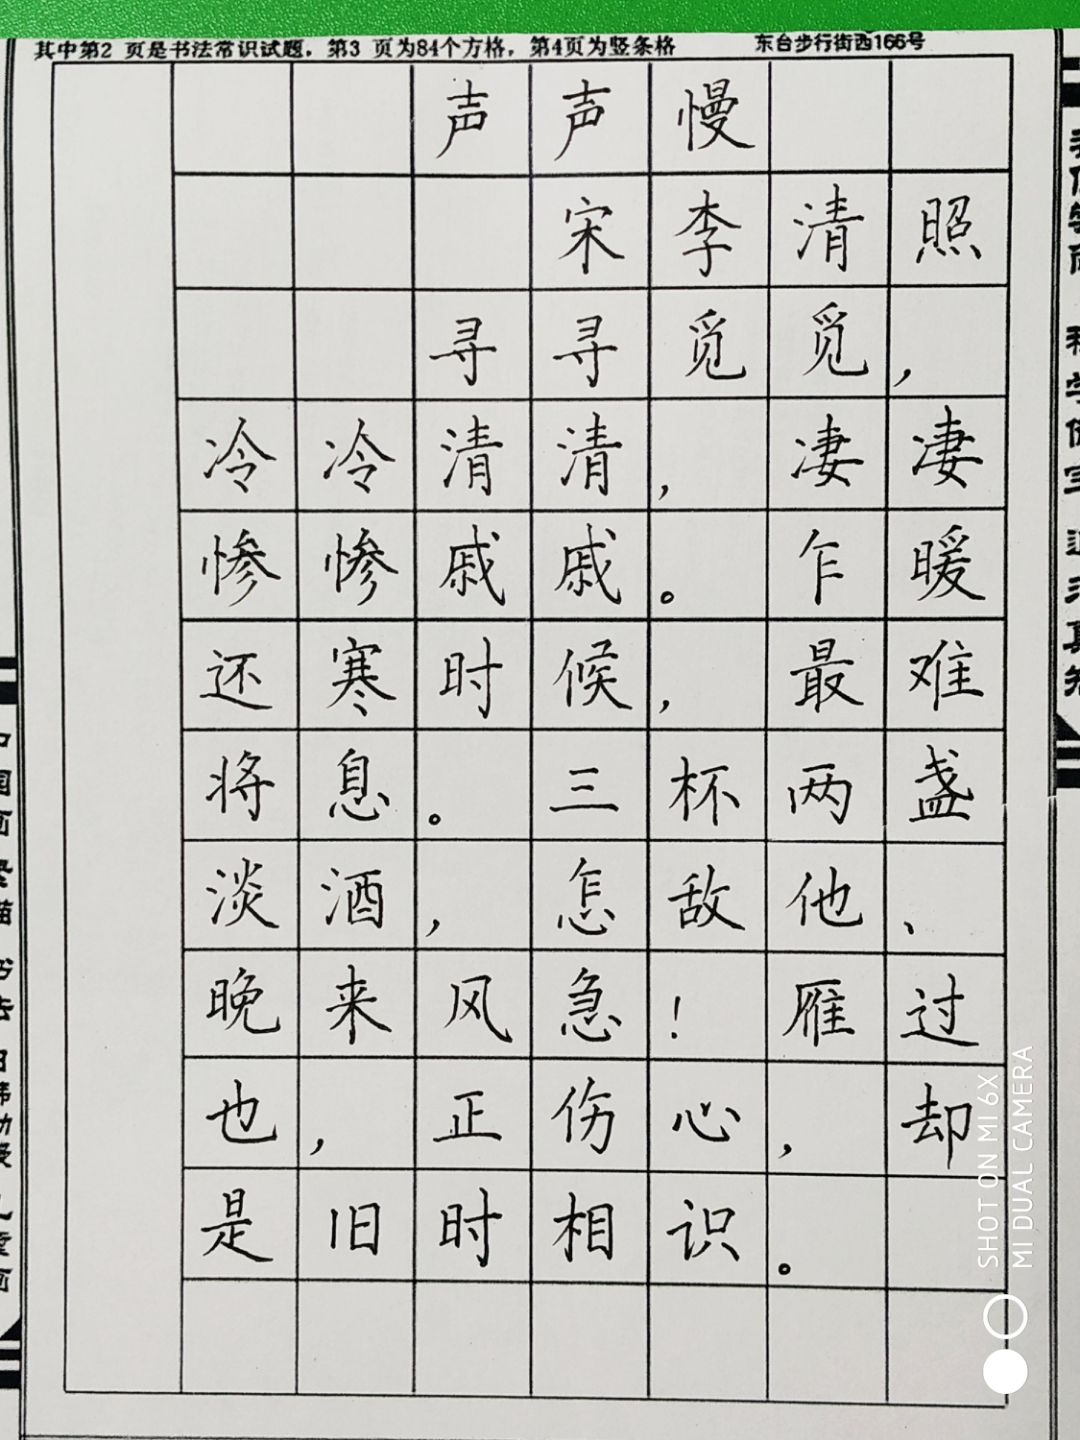 其中第2 页是书法常识试题，第3 页为84个方格，第4页为竖条格
东台步行街西166号
声声慢
宋李清照
寻寻觅觅，
冷冷清清，凄凄
惨惨戚戚。乍暖
还寒时候，最难
将息。三杯两盏
淡酒，怎敌他、
晚来风急！雁过
也，正伤心，却
是旧时相识。
SHOT ON MI 6X
MI DUAL CAMERA